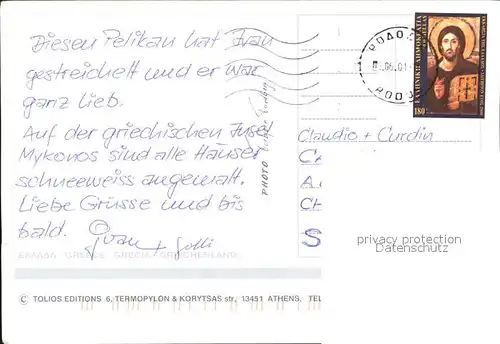 Diesen Pelikan hat Ivan
gestreichelt und er war
ganz lieb.
Auf der griechischen Insel
Mykonos sind alle Häuser
schneeweiss angemalt.
Liebe Grüsse und bis
bald.
Ivan +
ΕΛΛΑΔΑ GREECE GRECE GRIECHENLAND
© TOLIOS EDITIONS 6, TERMOPYLON & KORYTSAS str., 13451 ATHENS, TEL
PHOTO
ΡΟΔΟ
ΕΛΛΗΝΙΚΗ ΔΗΜΟΚΡΑΤΙΑ
HELLAS
180
Claudio + Curdin
C
A
CH
S
privacy protection
Datenschutz